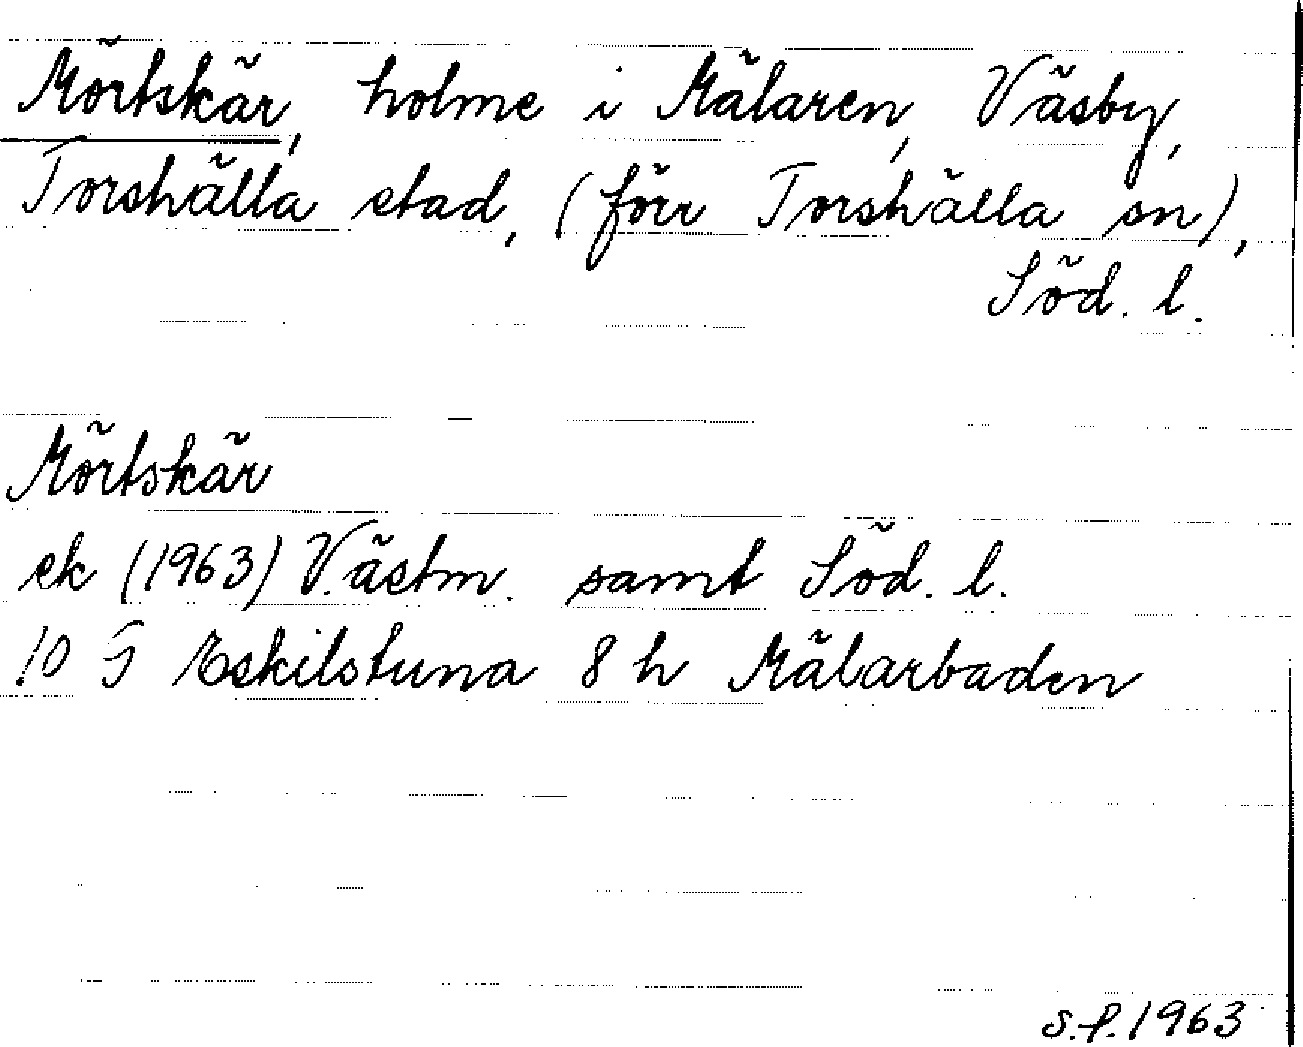 Mörtskär, holme i Mälaren, Väsby,
Torshälla stad, (förr Torshälla sn),
Söd. l.
Mörtskär
ek (1963) Västm. samt Söd. l.
10 G Eskilstuna 8 h Mälarbaden
s.f. 1963